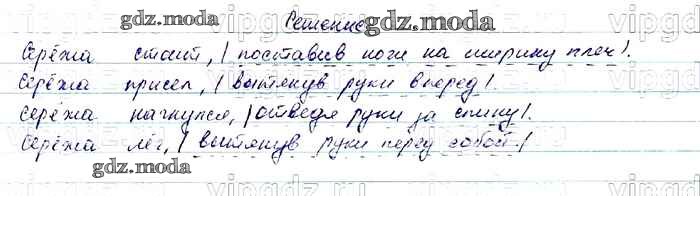 Решение
gdz.moda
gdz.moda
Серёжа стоит, | поставив ноги на ширину плеч |.
Серёжа присел, | вытянув руки вперед |.
Серёжа нагнулся, | отведя руки за спину |.
Серёжа лёг, | вытянув руки перед собой. |
gdz.moda
vipgdz.ru